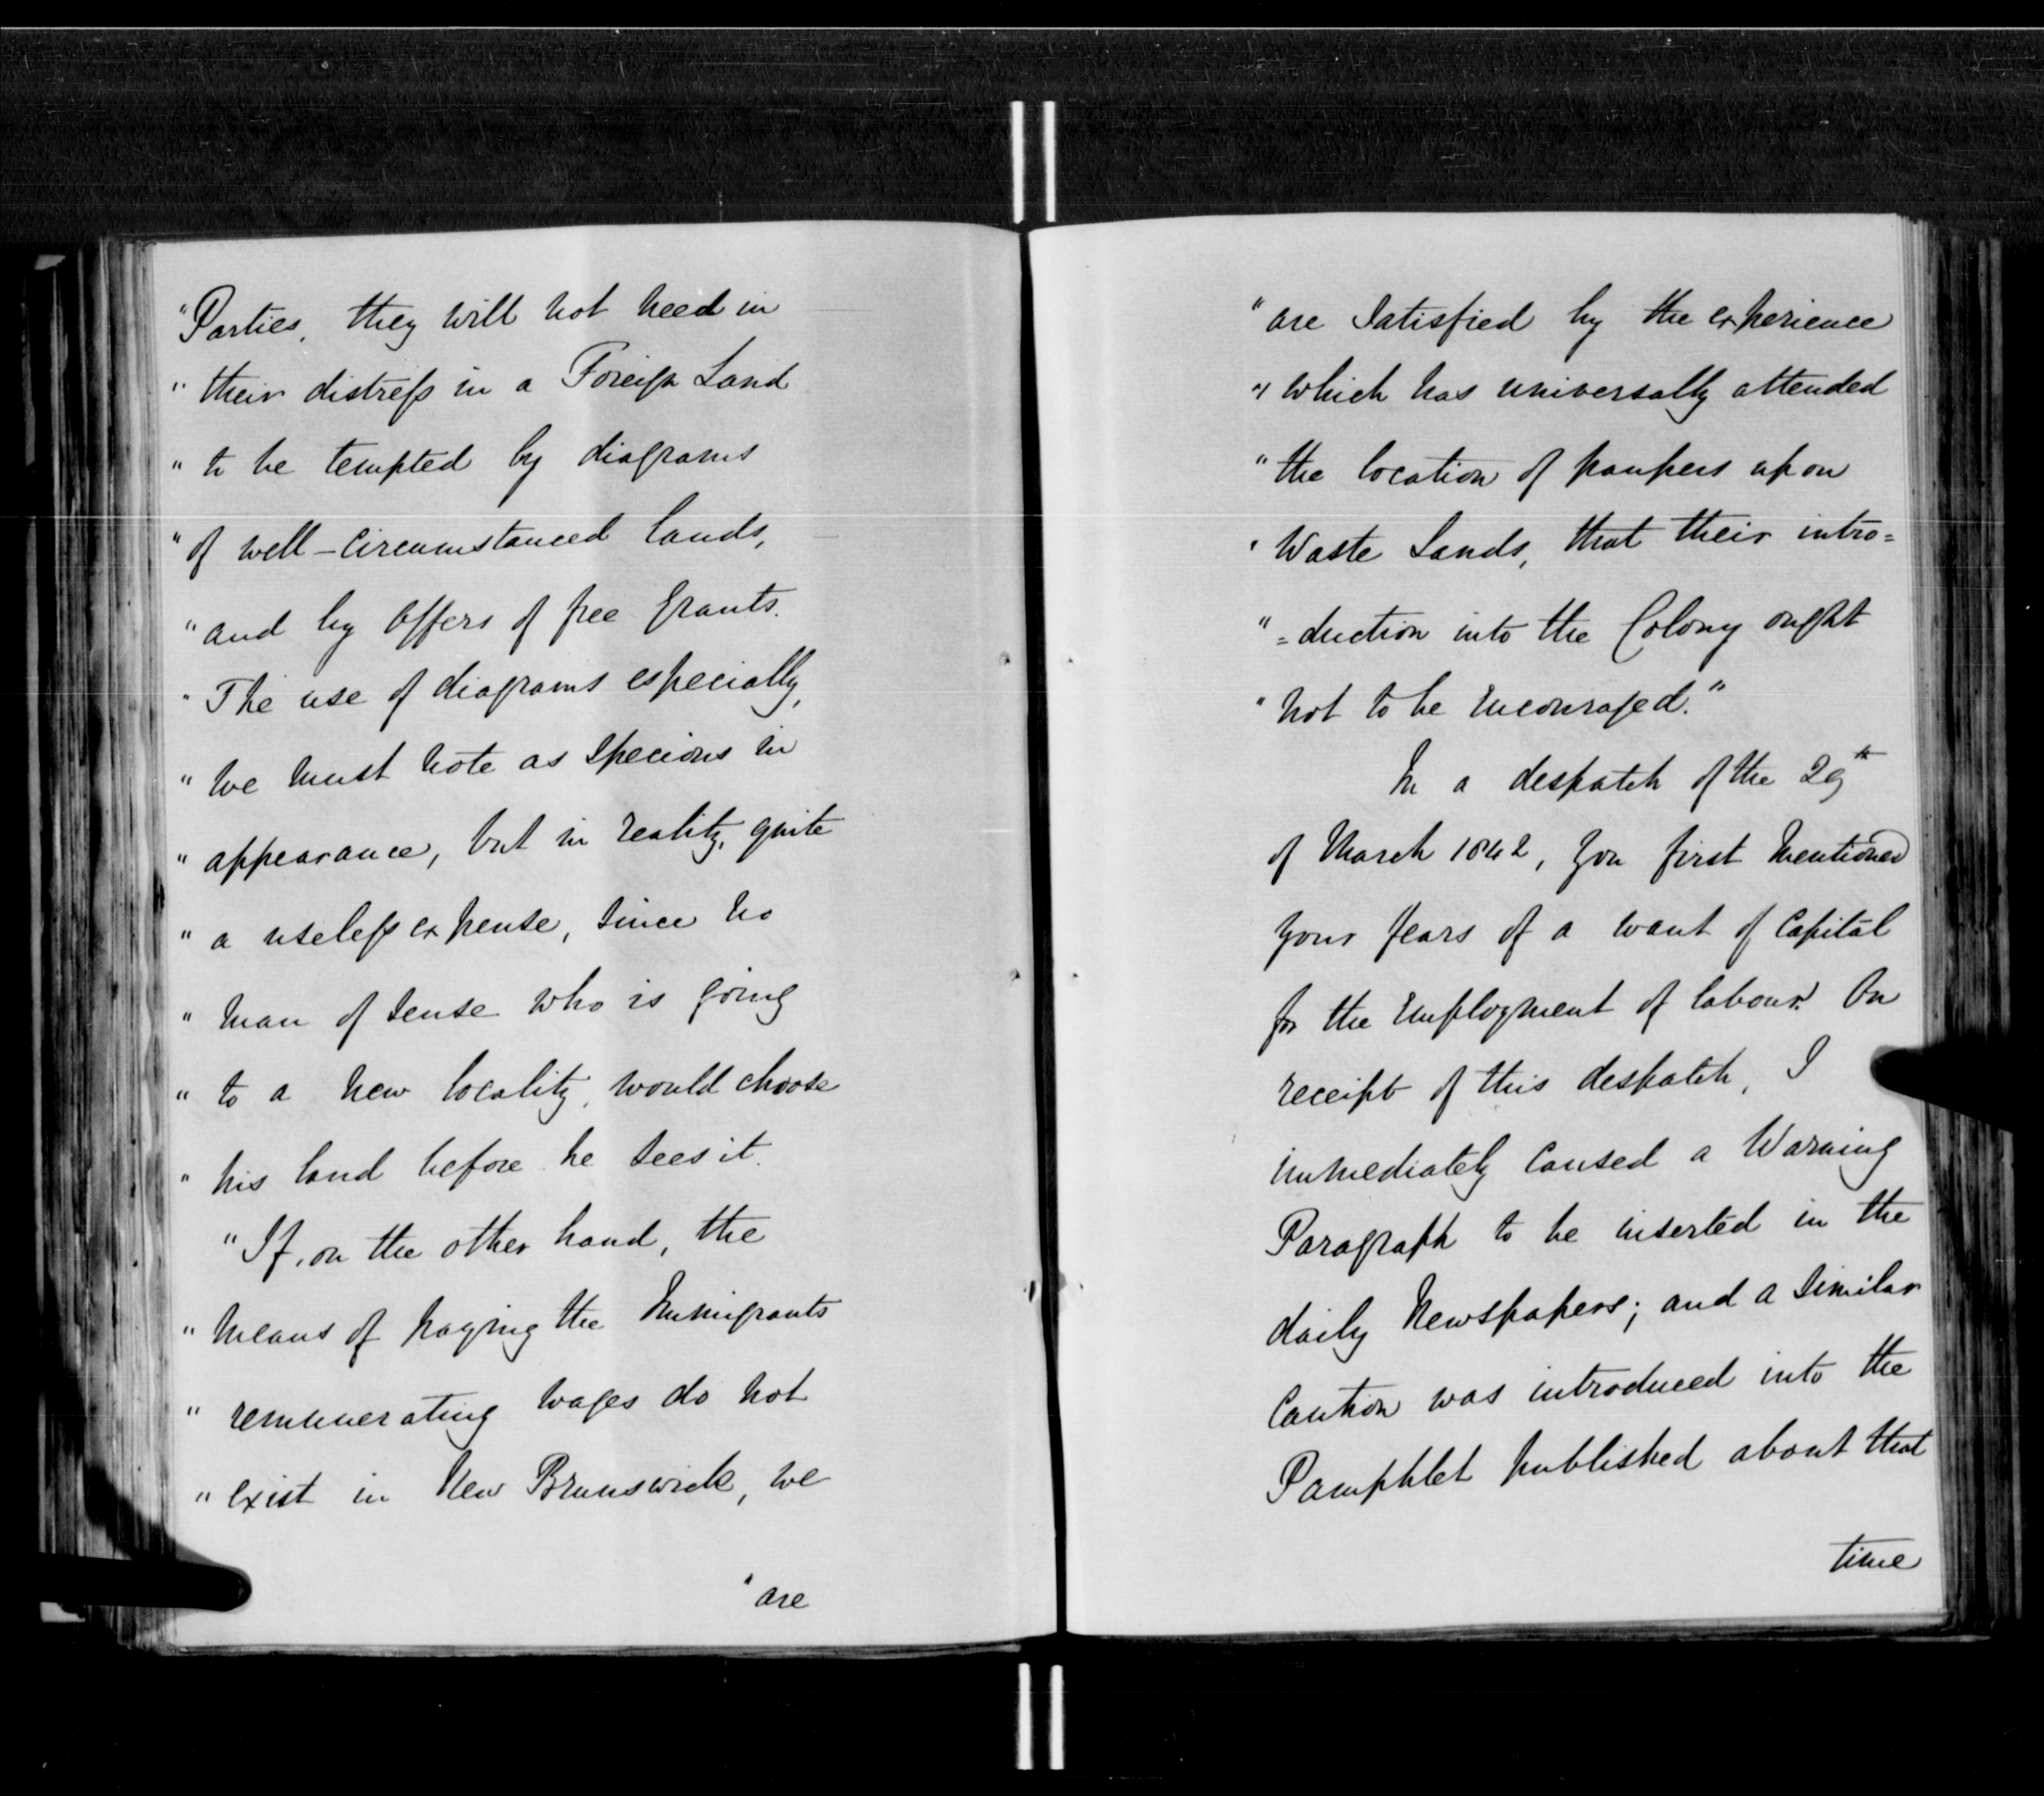 "Parties, they will not need in
" their distress in a Foreign Land
" to be tempted by diagrams
" of well-circumstanced lands,
" and by offers of free grants.
" The use of diagrams especially,
" we must note as specious in
" appearance, but in reality, quite
" a useless expense, since no
" man of sense who is going
" to a new locality, would choose
" his land before he sees it.
"If, on the other hand, the
" means of paying the Immigrants
" remunerating wages do not
" exist in New Brunswick, we
" are
" are satisfied by the experience
" which has universally attended
" the location of paupers upon
" Waste Lands, that their intro=
" =duction into the Colony ought
" not to be encouraged."
In a despatch of the 29th
of March 1842, you first mentioned
your fears of a want of Capital
for the employment of labour. On
receipt of this despatch, I
immediately caused a Warning
Paragraph to be inserted in the
daily Newspapers; and a similar
Caution was introduced into the
Pamphlet published about that
time